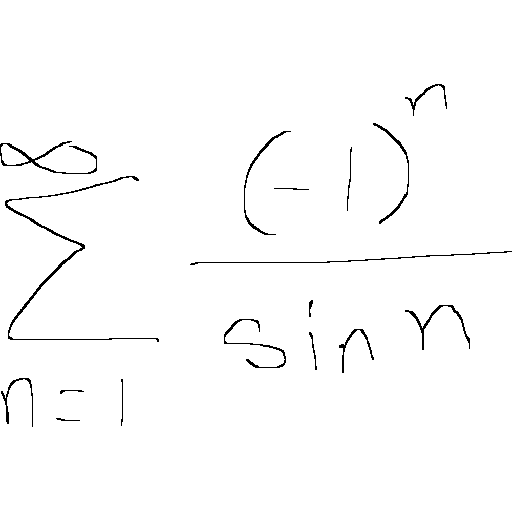 \sum_{n=1}^{\infty} \frac{(-1)^n}{\sin n}